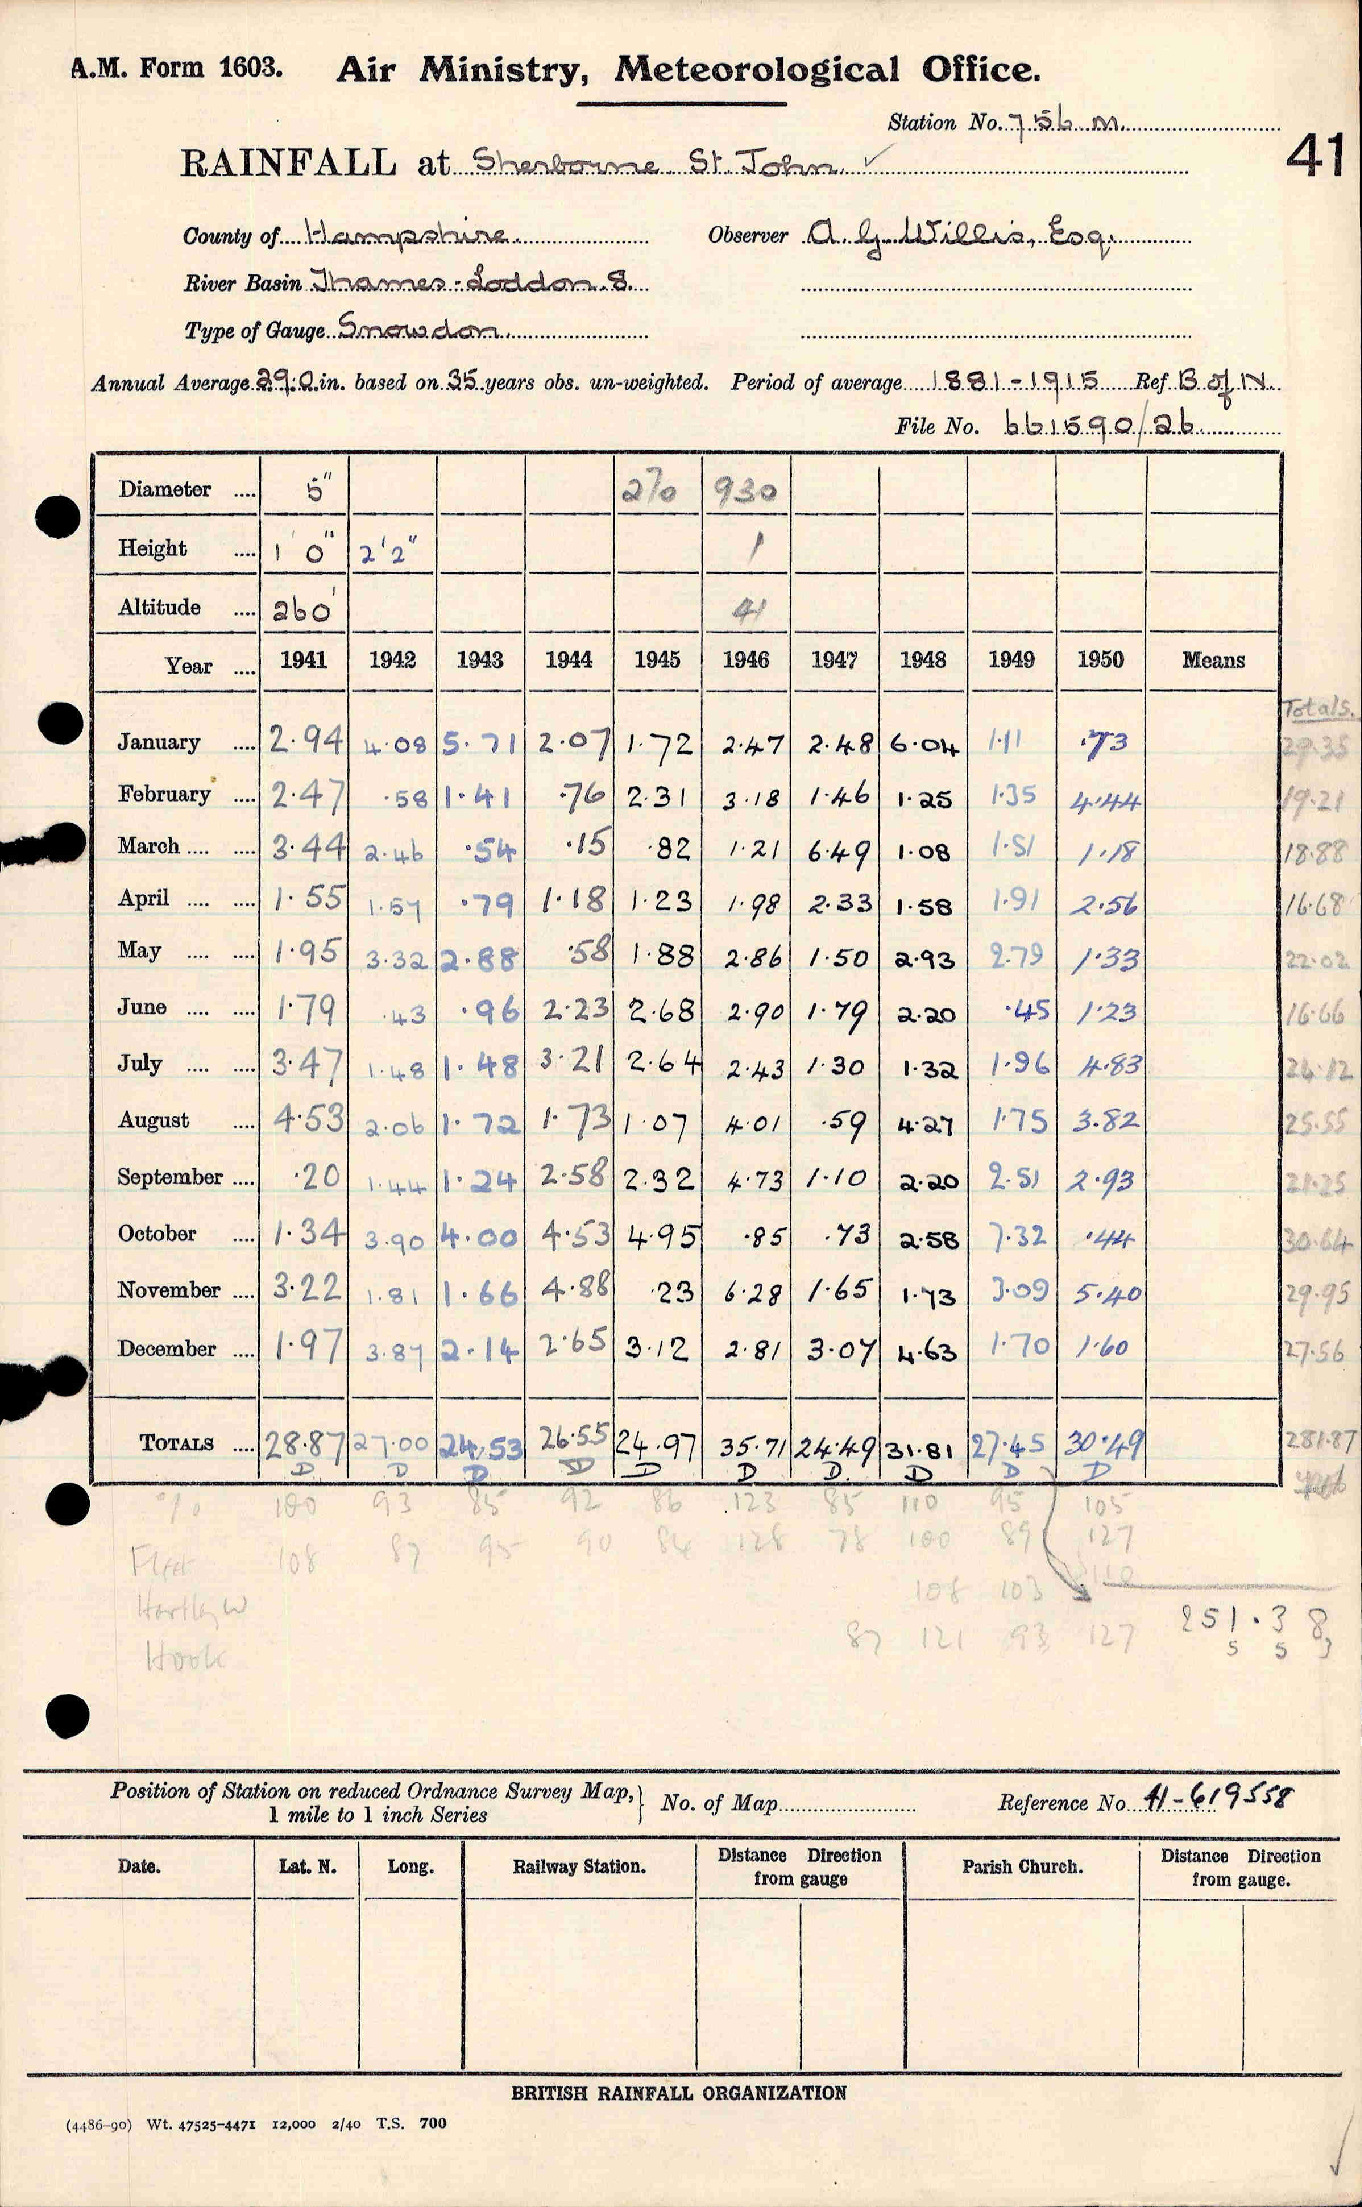 A.M. Form 1603. Air Ministry, Meteorological Office.
Station No. 756 M.
41
RAINFALL at Sherborne St. John. ✓
County of Hampshire. Observer A. G. Willis, Esq.
River Basin Thames-Loddon.8.
Type of Gauge Snowdon.
Annual Average 29.0 in. based on 35 years obs. un-weighted. Period of average 1881-1915 Ref B of N.
File No. 661590/26
Diameter .... 5" 270 930
Height .... 1' 0" 2'2" 1
Altitude .... 260' 41
Year .... 1941 1942 1943 1944 1945 1946 1947 1948 1949 1950 Means
Totals.
January .... 2.94 4.08 5.71 2.07 1.72 2.47 2.48 6.04 1.11 .73 29.35
February .... 2.47 .58 1.41 .76 2.31 3.18 1.46 1.25 1.35 4.44 19.21
March .... .... 3.44 2.46 .54 .15 .82 1.21 6.49 1.08 1.51 1.18 18.88
April .... .... 1.55 1.57 .79 1.18 1.23 1.98 2.33 1.58 1.91 2.56 16.68
May .... .... 1.95 3.32 2.88 .58 1.88 2.86 1.50 2.93 2.79 1.33 22.02
June .... .... 1.79 .43 .96 2.23 2.68 2.90 1.79 2.20 .45 1.23 16.66
July .... .... 3.47 1.48 1.48 3.21 2.64 2.43 1.30 1.32 1.96 4.83 24.12
August .... 4.53 2.06 1.72 1.73 1.07 4.01 .59 4.27 1.75 3.82 25.55
September .... .20 1.44 1.24 2.58 2.32 4.73 1.10 2.20 2.51 2.93 21.25
October .... 1.34 3.90 4.00 4.53 4.95 .85 .73 2.58 7.32 .44 30.64
November .... 3.22 1.81 1.66 4.88 .23 6.28 1.65 1.73 3.09 5.40 29.95
December .... 1.97 3.87 2.14 2.65 3.12 2.81 3.07 4.63 1.70 1.60 27.56
TOTALS .... 28.87 27.00 24.53 26.55 24.97 35.71 24.49 31.81 27.45 30.49 281.87
D D D D D D D D D D
% 100 93 85 92 86 123 85 110 95 105
Fleet 108 87 95 90 84 128 78 100 89 127
Hartley W 108 103 110
Hook 87 121 93 127
251.38
5 5 3
Position of Station on reduced Ordnance Survey Map, 1 mile to 1 inch Series } No. of Map Reference No. 41-619558
Date. Lat. N. Long. Railway Station. Distance from gauge Direction Parish Church. Distance from gauge. Direction
BRITISH RAINFALL ORGANIZATION
(4486-90) Wt. 47525-4471 12,000 2/40 T.S. 700